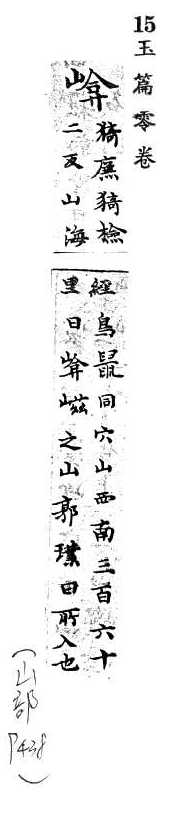 15 玉篇零卷
猗廉猗檢
二反山海
經鳥鼠同穴山西南三百六十
里曰嵫之山郭璞曰所入也
(山部 P438)